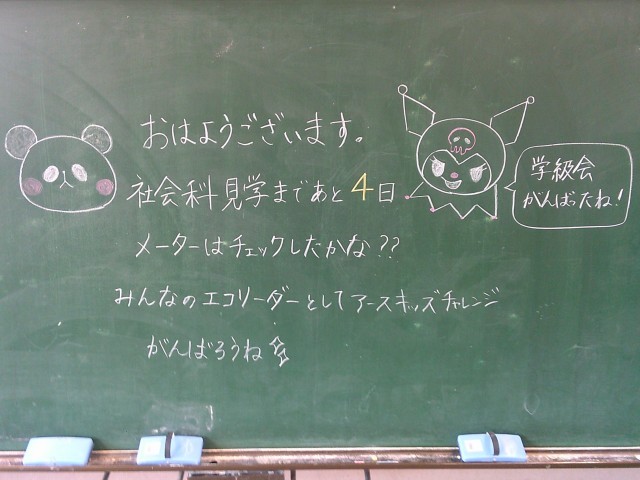 おはようございます。
社会科見学まであと4日
メーターはチェックしたかな??
みんなのエコリーダーとしてアースキッズチャレンジ
がんばろうね
学級会
がんばったね!